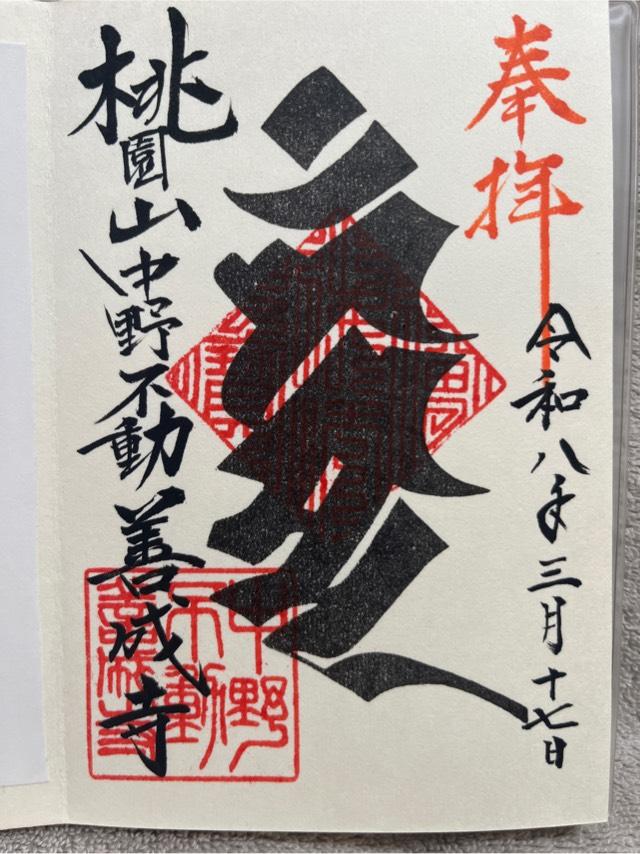 奉拝
令和八年三月十七日
桃園山中野不動善成寺
中野
不動
善成寺